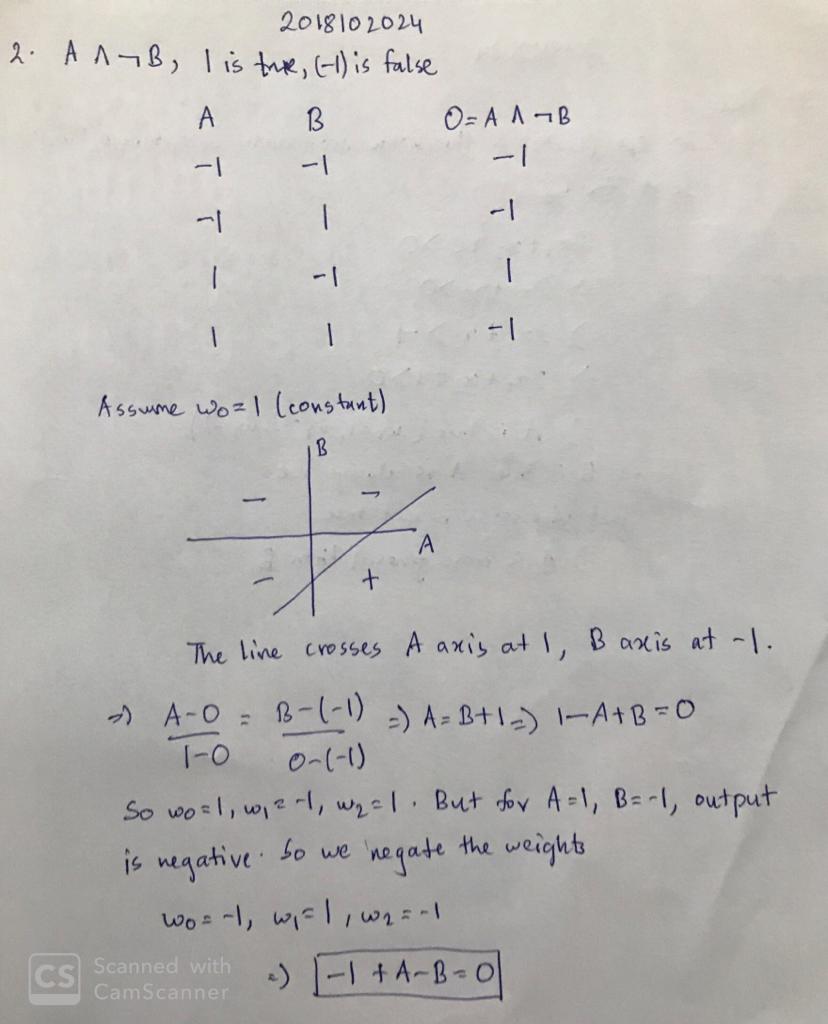 2018102024
2. A ∧ ¬B, 1 is true, (-1) is false
A B O = A ∧ ¬B
-1 -1 -1
-1 1 -1
1 -1 1
1 1 -1
Assume w0 = 1 (constant)
B
- -
A
- +
The line crosses A axis at 1, B axis at -1.
=) A-0/1-0 = B-(-1)/0-(-1) =) A = B+1 =) 1-A+B = 0
So w0=1, w1=-1, w2=1. But for A=1, B=-1, output
is negative. So we negate the weights
w0 = -1, w1 = 1, w2 = -1
=) -1 + A - B = 0
CS Scanned with
CamScanner